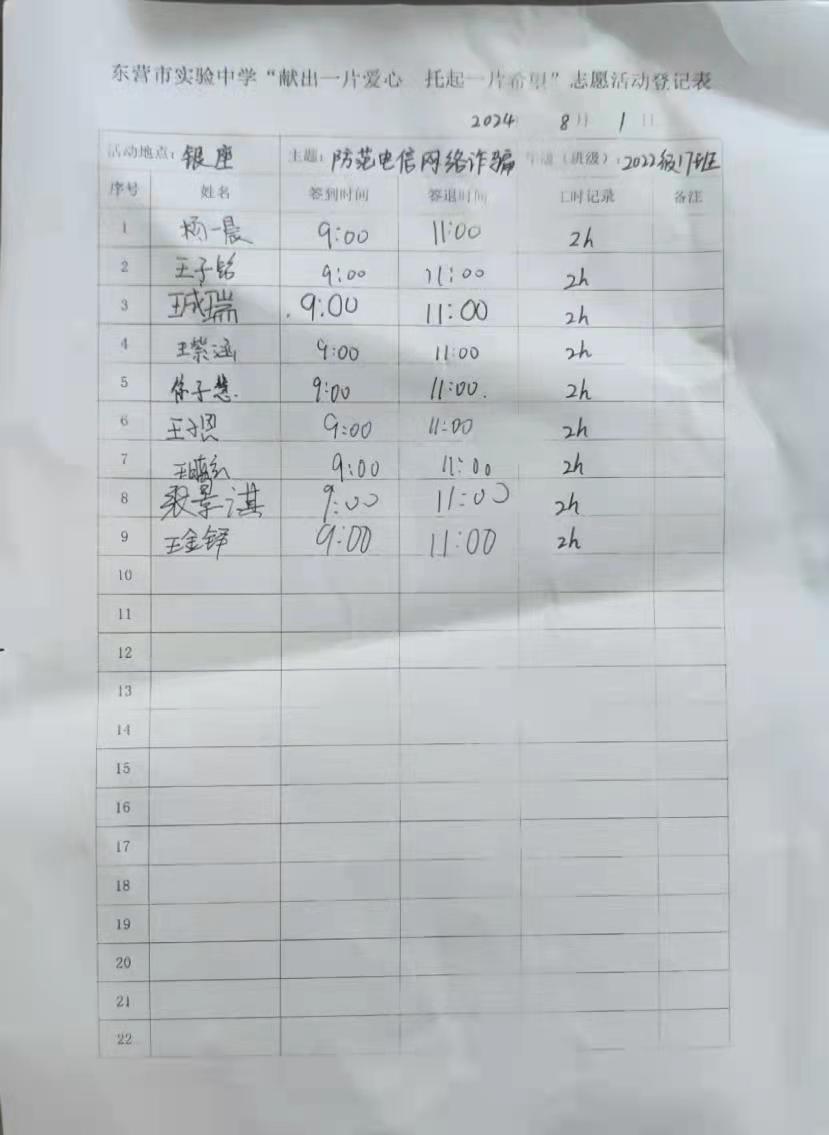 东营市实验中学“献出一片爱心 托起一片希望”志愿活动登记表
2024年 8月 1日
活动地点：银座 主题：防范电信网络诈骗 年级（班级）：2022级17班
序号 姓名 签到时间 签退时间 工时记录 备注
1 杨一晨 9:00 11:00 2h
2 王子铭 9:00 11:00 2h
3 王成瑞 9:00 11:00 2h
4 王紫涵 9:00 11:00 2h
5 徐子慧 9:00 11:00 2h
6 王子 9:00 11:00 2h
7 王 9:00 11:00 2h
8 裴景淇 9:00 11:00 2h
9 王金铎 9:00 11:00 2h
10
11
12
13
14
15
16
17
18
19
20
21
22